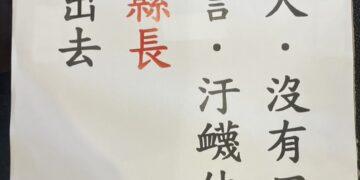 ・沒有
・汙衊
縣長
出去